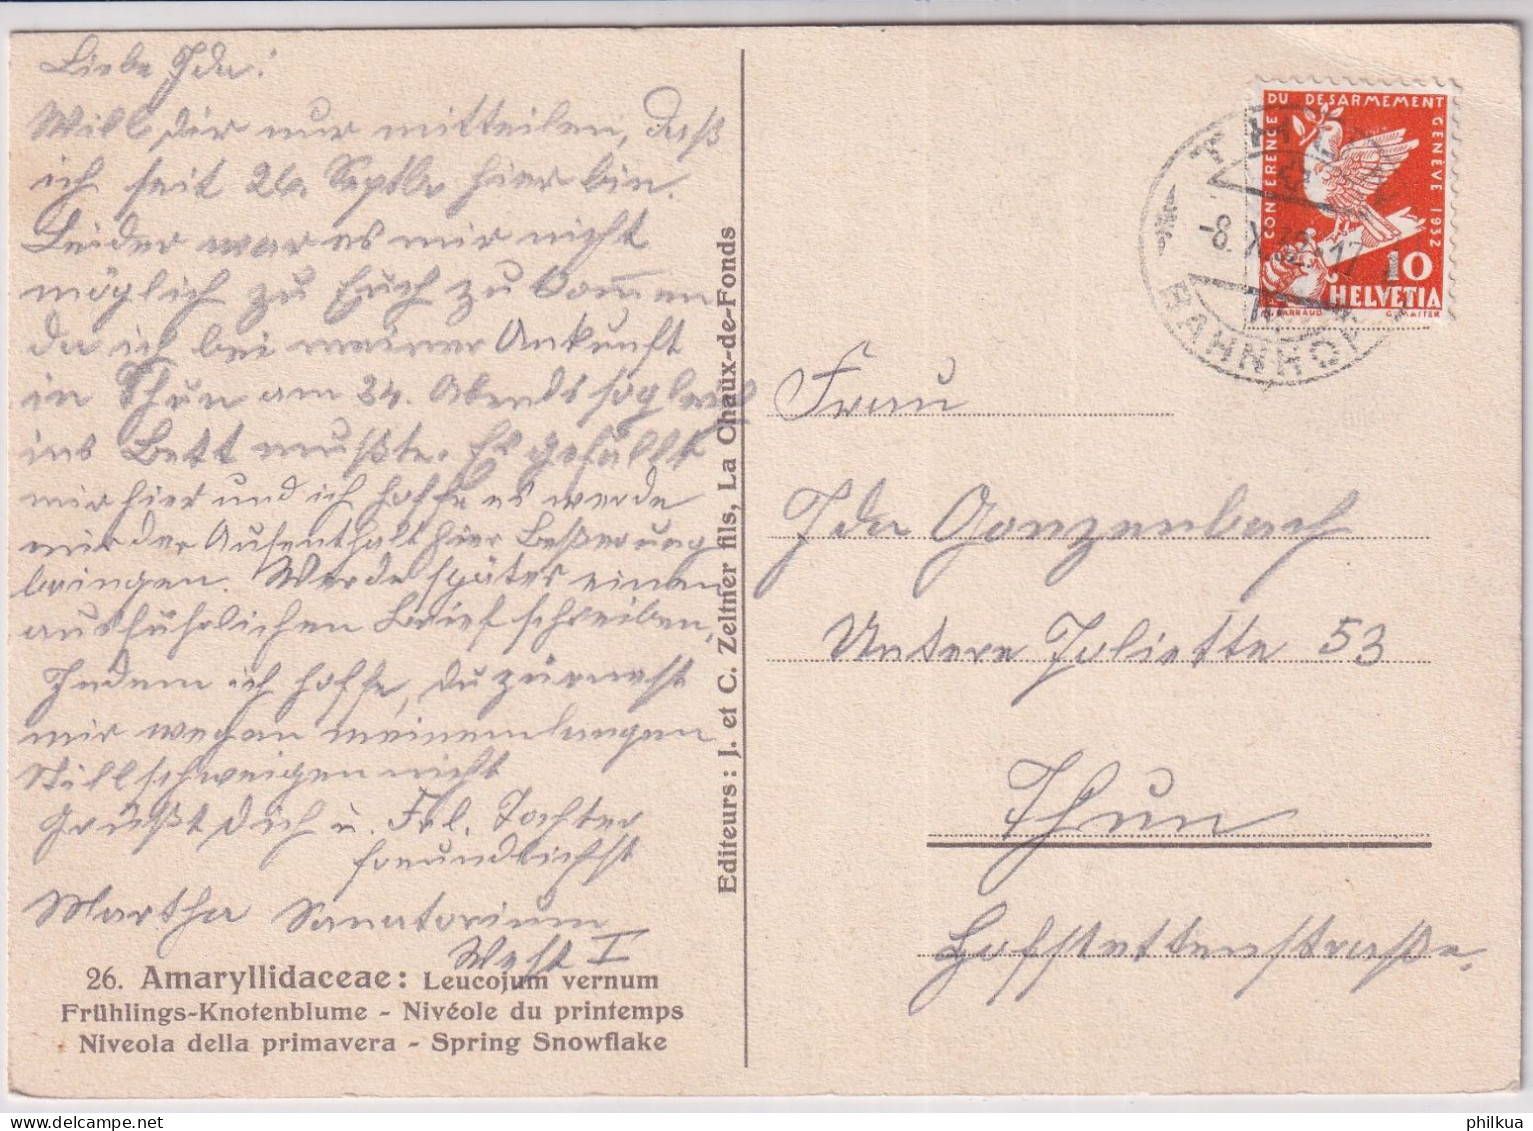 Liebe Ida!
Will dir nur mitteilen, daß
ich seit 26. Septbr hier bin.
Leider war es mir nicht
möglich zu Euch zu kommen
da ich bei meiner Ankunft
in Thun am 24. Abends sogleich
ins Bett mußte. Es gefällt
mir hier und ich hoffe es werde
mir der Aufenthalt hier Beßerung
bringen. Werde später einen
ausführlichen Brief schreiben,
Indem ich hoffe, du zürnest
mir wegen meinem langen
Stillschweigen nicht
Grüßt dich u. Frl. Tochter
freundlichst
Martha Sanatorium
West I
26. Amaryllidaceae: Leucojum vernum
Frühlings-Knotenblume - Nivéole du printemps
Niveola della primavera - Spring Snowflake
Editeurs: J. et C. Zeltner fils, La Chaux-de-Fonds
CONFÉRENCE DU DESARMEMENT GENÈVE 1932
10
HELVETIA
THUN
-8.X.32.-17
BAHNHOF
Frau
Ida Gonzenbach
Untere Joliette 53
Thun
Hofstettenstraße.
philkua.com